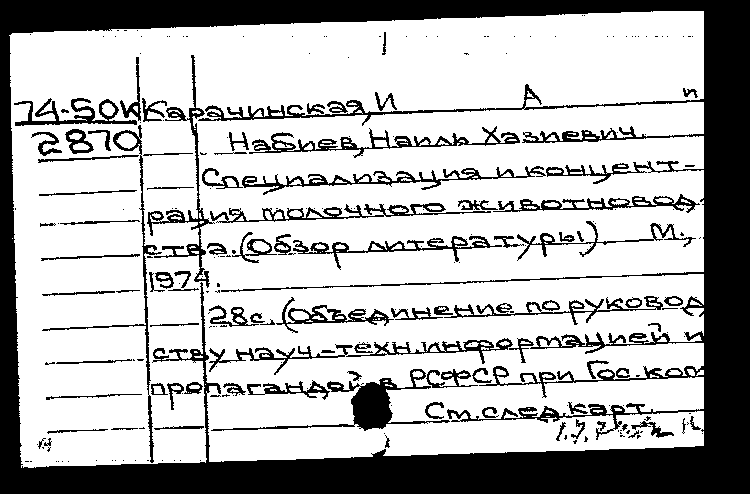 74-50к Карачинская, И А п
2870 Набиев, Наиль Хазиевич.
Специализация и концент-
рация молочного животновод-
ства. (Обзор литературы). М.,
1974.
28с. (Объединение по руковод
ству науч.-техн.информацией и
пропагандой в РСФСР при Гос.ком
См.след.карт.